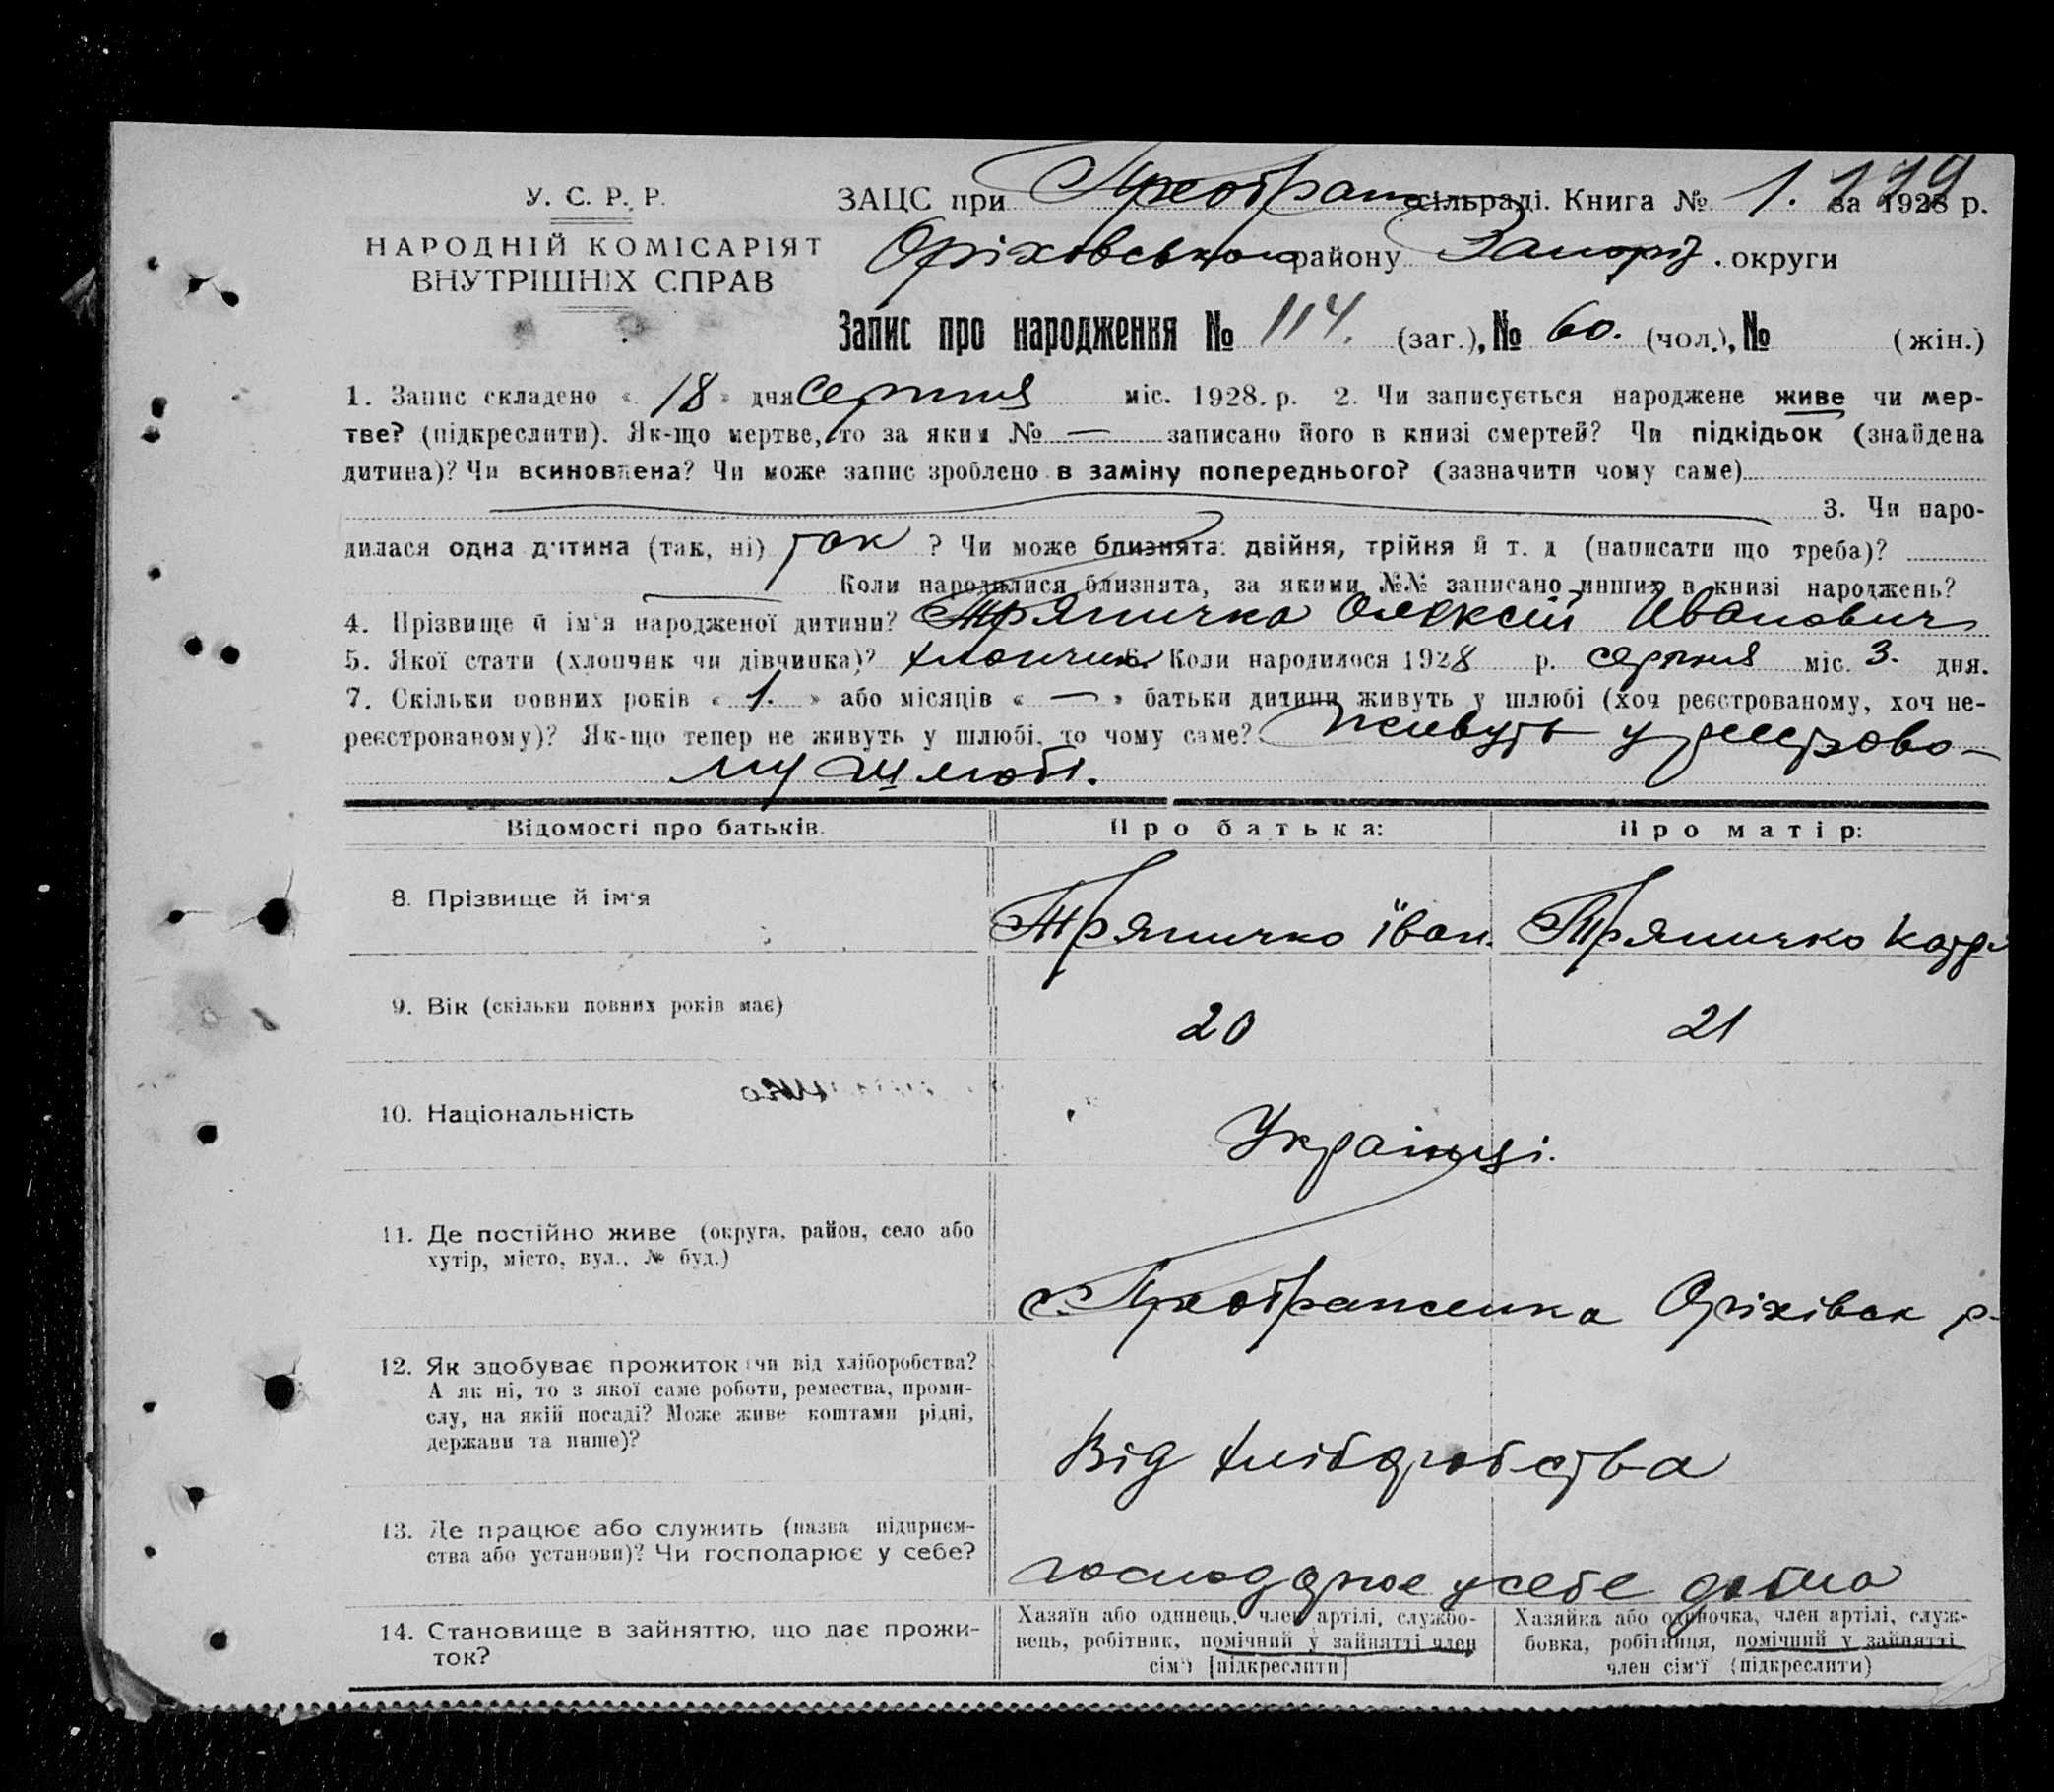 У. С. Р. Р.
НАРОДНІЙ КОМІСАРІЯТ
ВНУТРІШНІХ СПРАВ
ЗАЦС при Преображ сільраді. Книга № 1. за 1928 р.
119
Оріховського району Запоріз. округи
Запис про народження № 114. (заг.), № 60. (чол.), № (жін.)
1. Запис складено « 18 » дня серпня міс. 1928. р. 2. Чи записується народжене живе чи мер-
тве? (підкреслити). Як-що мертве, то за яким № — записано його в книзі смертей? Чи підкідьок (знайдена
дитина)? Чи всиновлена? Чи може запис зроблено в заміну попереднього? (зазначити чому саме)
3. Чи наро-
дилася одна дитина (так, ні) так ? Чи може близнята: двійня, трійня й т. д (написати що треба)?
Коли народилися близнята, за якими №№ записано инших в книзі народжень?
4. Прізвище й ім'я народженої дитини? Тряпичко Олексій Иванович
5. Якої стати (хлопчик чи дівчинка)? хлопчик 6. Коли народилося 1928 р. серпня міс. 3. дня.
7. Скільки повних років « 1. » або місяців « — » батьки дитини живуть у шлюбі (хоч реєстрованому, хоч не-
реєстрованому)? Як-що тепер не живуть у шлюбі, то чому саме? Живуть у
му шлюбі.
Відомості про батьків. Про батька: Про матір:
8. Прізвище й ім'я Тряпичко Іван. Тряпичко Катр
9. Вік (скільки повних років має) 20 21
10. Національність Українці.
11. Де постійно живе (округа, район, село або
хутір, місто, вул., № буд.)
с. Преображенка Оріхівськ р.
12. Як здобуває прожиток (чи від хліборобства?
А як ні, то з якої саме роботи, ремества, проми-
слу, на якій посаді? Може живе коштами рідні,
держави та инше)?
Від хліборобства
13. Де працює або служить (назва підприєм-
ства або установи)? Чи господарює у себе?
господарює у себе дома
14. Становище в зайняттю, що дає прожи-
ток?
Хазяїн або одинець, член артілі, службо-
вець, робітник, помічний у зайнятті член
сім'ї [підкреслити]
Хазяйка або одиночка, член артілі, служ-
бовка, робітниця, помічний у зайнятті
член сім'ї (підкреслити)